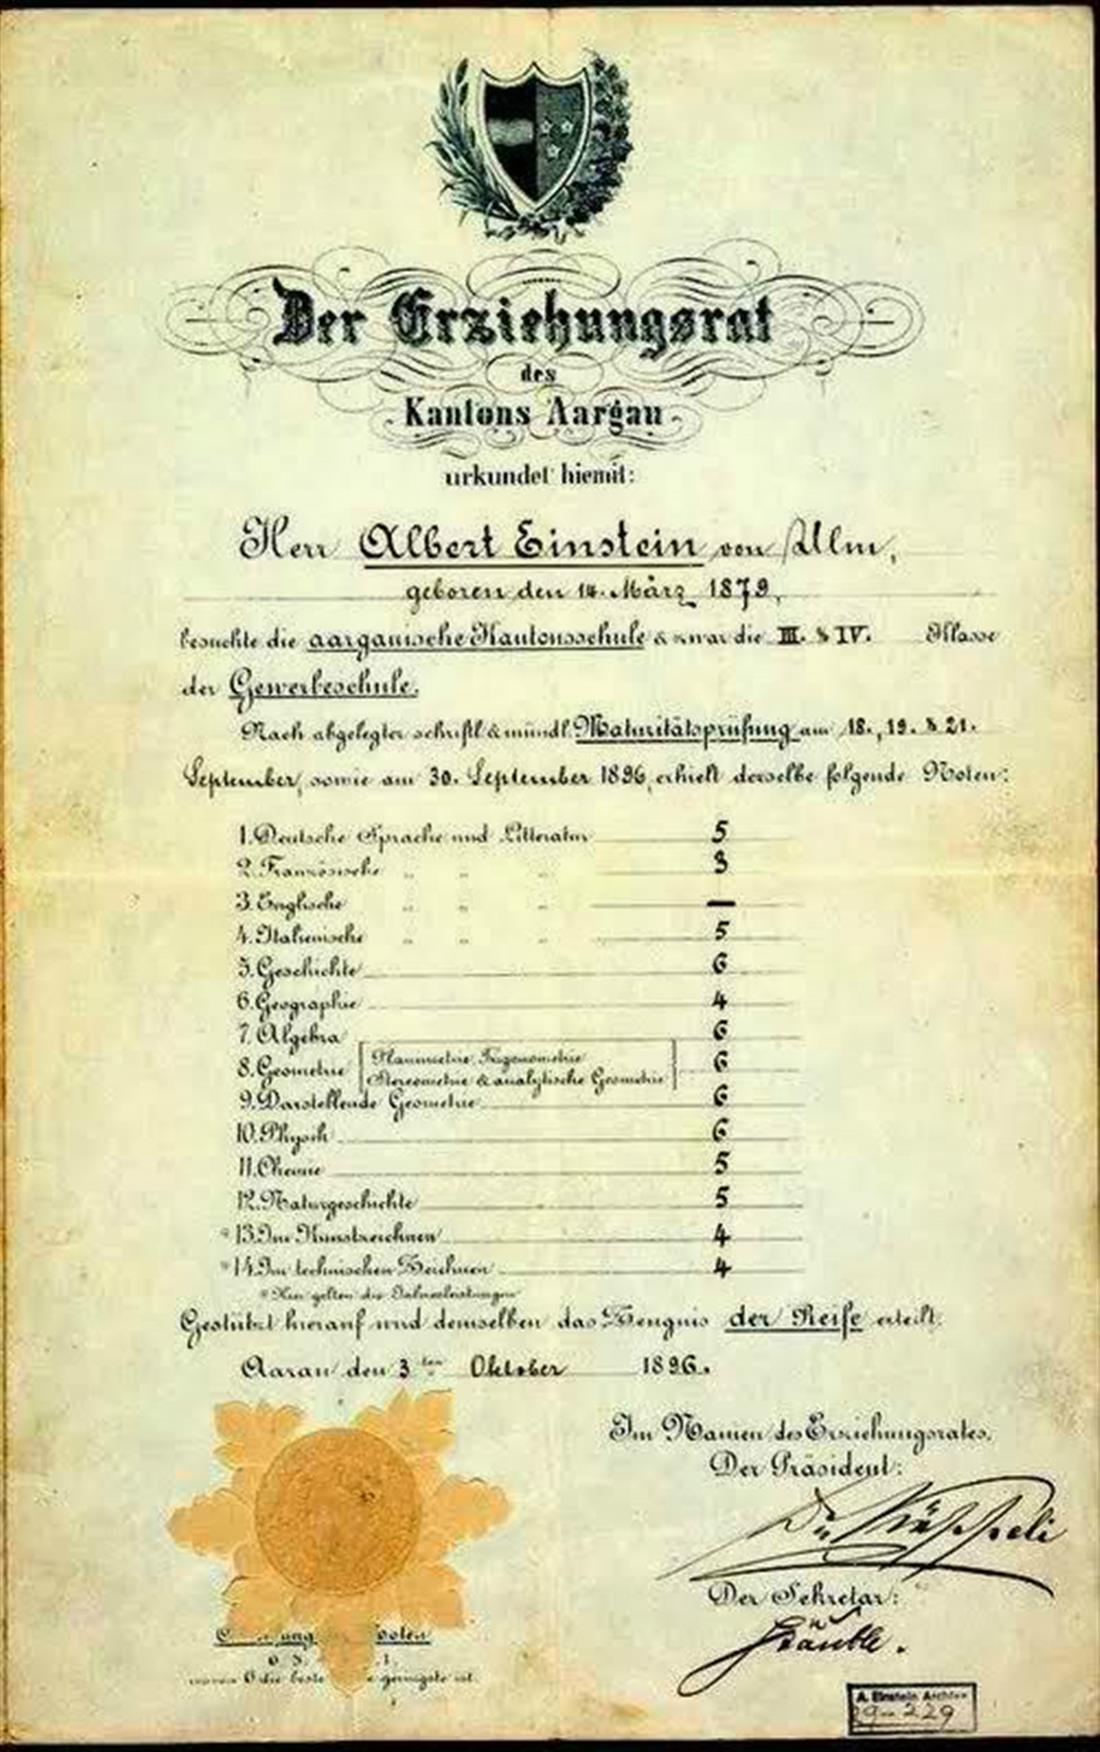 Der Erziehungsrat
des
Kantons Aargau
urkundet hiemit:
Herr Albert Einstein von Ulm,
geboren den 14. März 1879,
besuchte die aargauische Kantonsschule & zwar die III. & IV. Klasse
der Gewerbeschule.
Nach abgelegter schriftl. & mündl. Maturitätsprüfung am 18., 19. & 21.
September, sowie am 30. September 1896, erhielt derselbe folgende Noten:
1. Deutsche Sprache und Litteratur 5
2. Französische " " " 3
3. Englische " " " —
4. Italienische " " " 5
5. Geschichte 6
6. Geographie 4
7. Algebra 6
8. Geometrie [Planimetrie, Trigonometrie
Stereometrie & analytische Geometrie] 6
9. Darstellende Geometrie 6
10. Physik 6
11. Chemie 5
12. Naturgeschichte 5
* 13. Im Kunstzeichnen 4
* 14. Im technischen Zeichnen 4
* Hier gelten die Jahresleistungen
Gestützt hierauf wird demselben das Zeugnis der Reife erteilt.
Aarau den 3ten Oktober 1896.
Im Namen des Erziehungsrates,
Der Präsident:
Dr. Käppeli
Der Sekretär:
Stäuble.
6 die beste geringste ist.
A. Einstein Archive
29-229